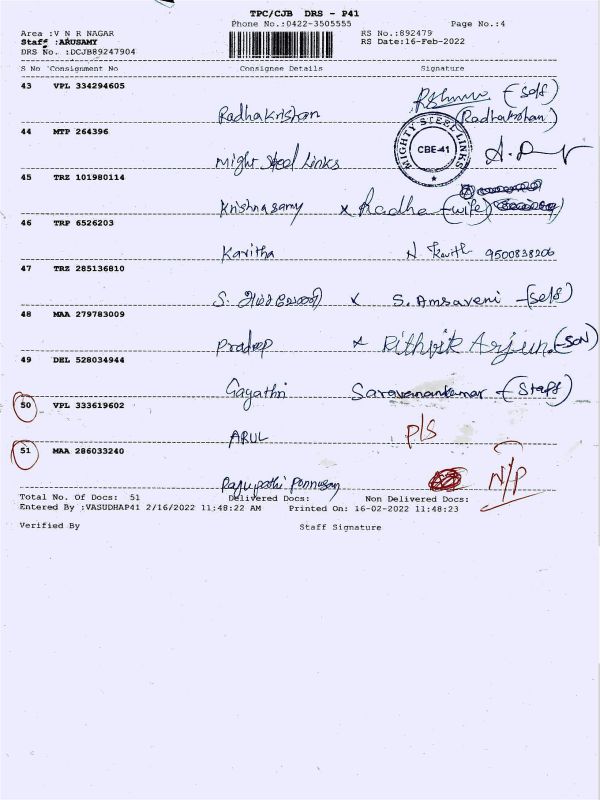 TPC/CJB DRS - P41
Phone No.:0422-3505555 Page No.:4
Area :V N R NAGAR RS No.:892479
Staff :ARUSAMY RS Date:16-Feb-2022
DRS No. :DCJB89247904
S No Consignment No Consignee Details Signature
43 VPL 334294605 (Self)
Radhakrishan (Radhakrishan)
44 MTP 264396 MIGHTY STEEL LINKS CBE-41
Might Steel Links
45 TRZ 101980114
Krishnasamy x Radha (wife)
46 TRP 6526203
Kavitha N. Kavith 9500838206
47 TRZ 285136810
S. அம்சவேணி x S. Amsaveni (Self)
48 MAA 279783009
Pradeep x Rithvik Arjun (Son)
49 DEL 528034944
Gayathri Saravanankumar (Staff)
50 VPL 333619602
ARUL P/S
51 MAA 286033240
Ponnusamy N/P
Total No. Of Docs: 51 Delivered Docs: Non Delivered Docs:
Entered By :VASUDHAP41 2/16/2022 11:48:22 AM Printed On: 16-02-2022 11:48:23
Verified By Staff Signature